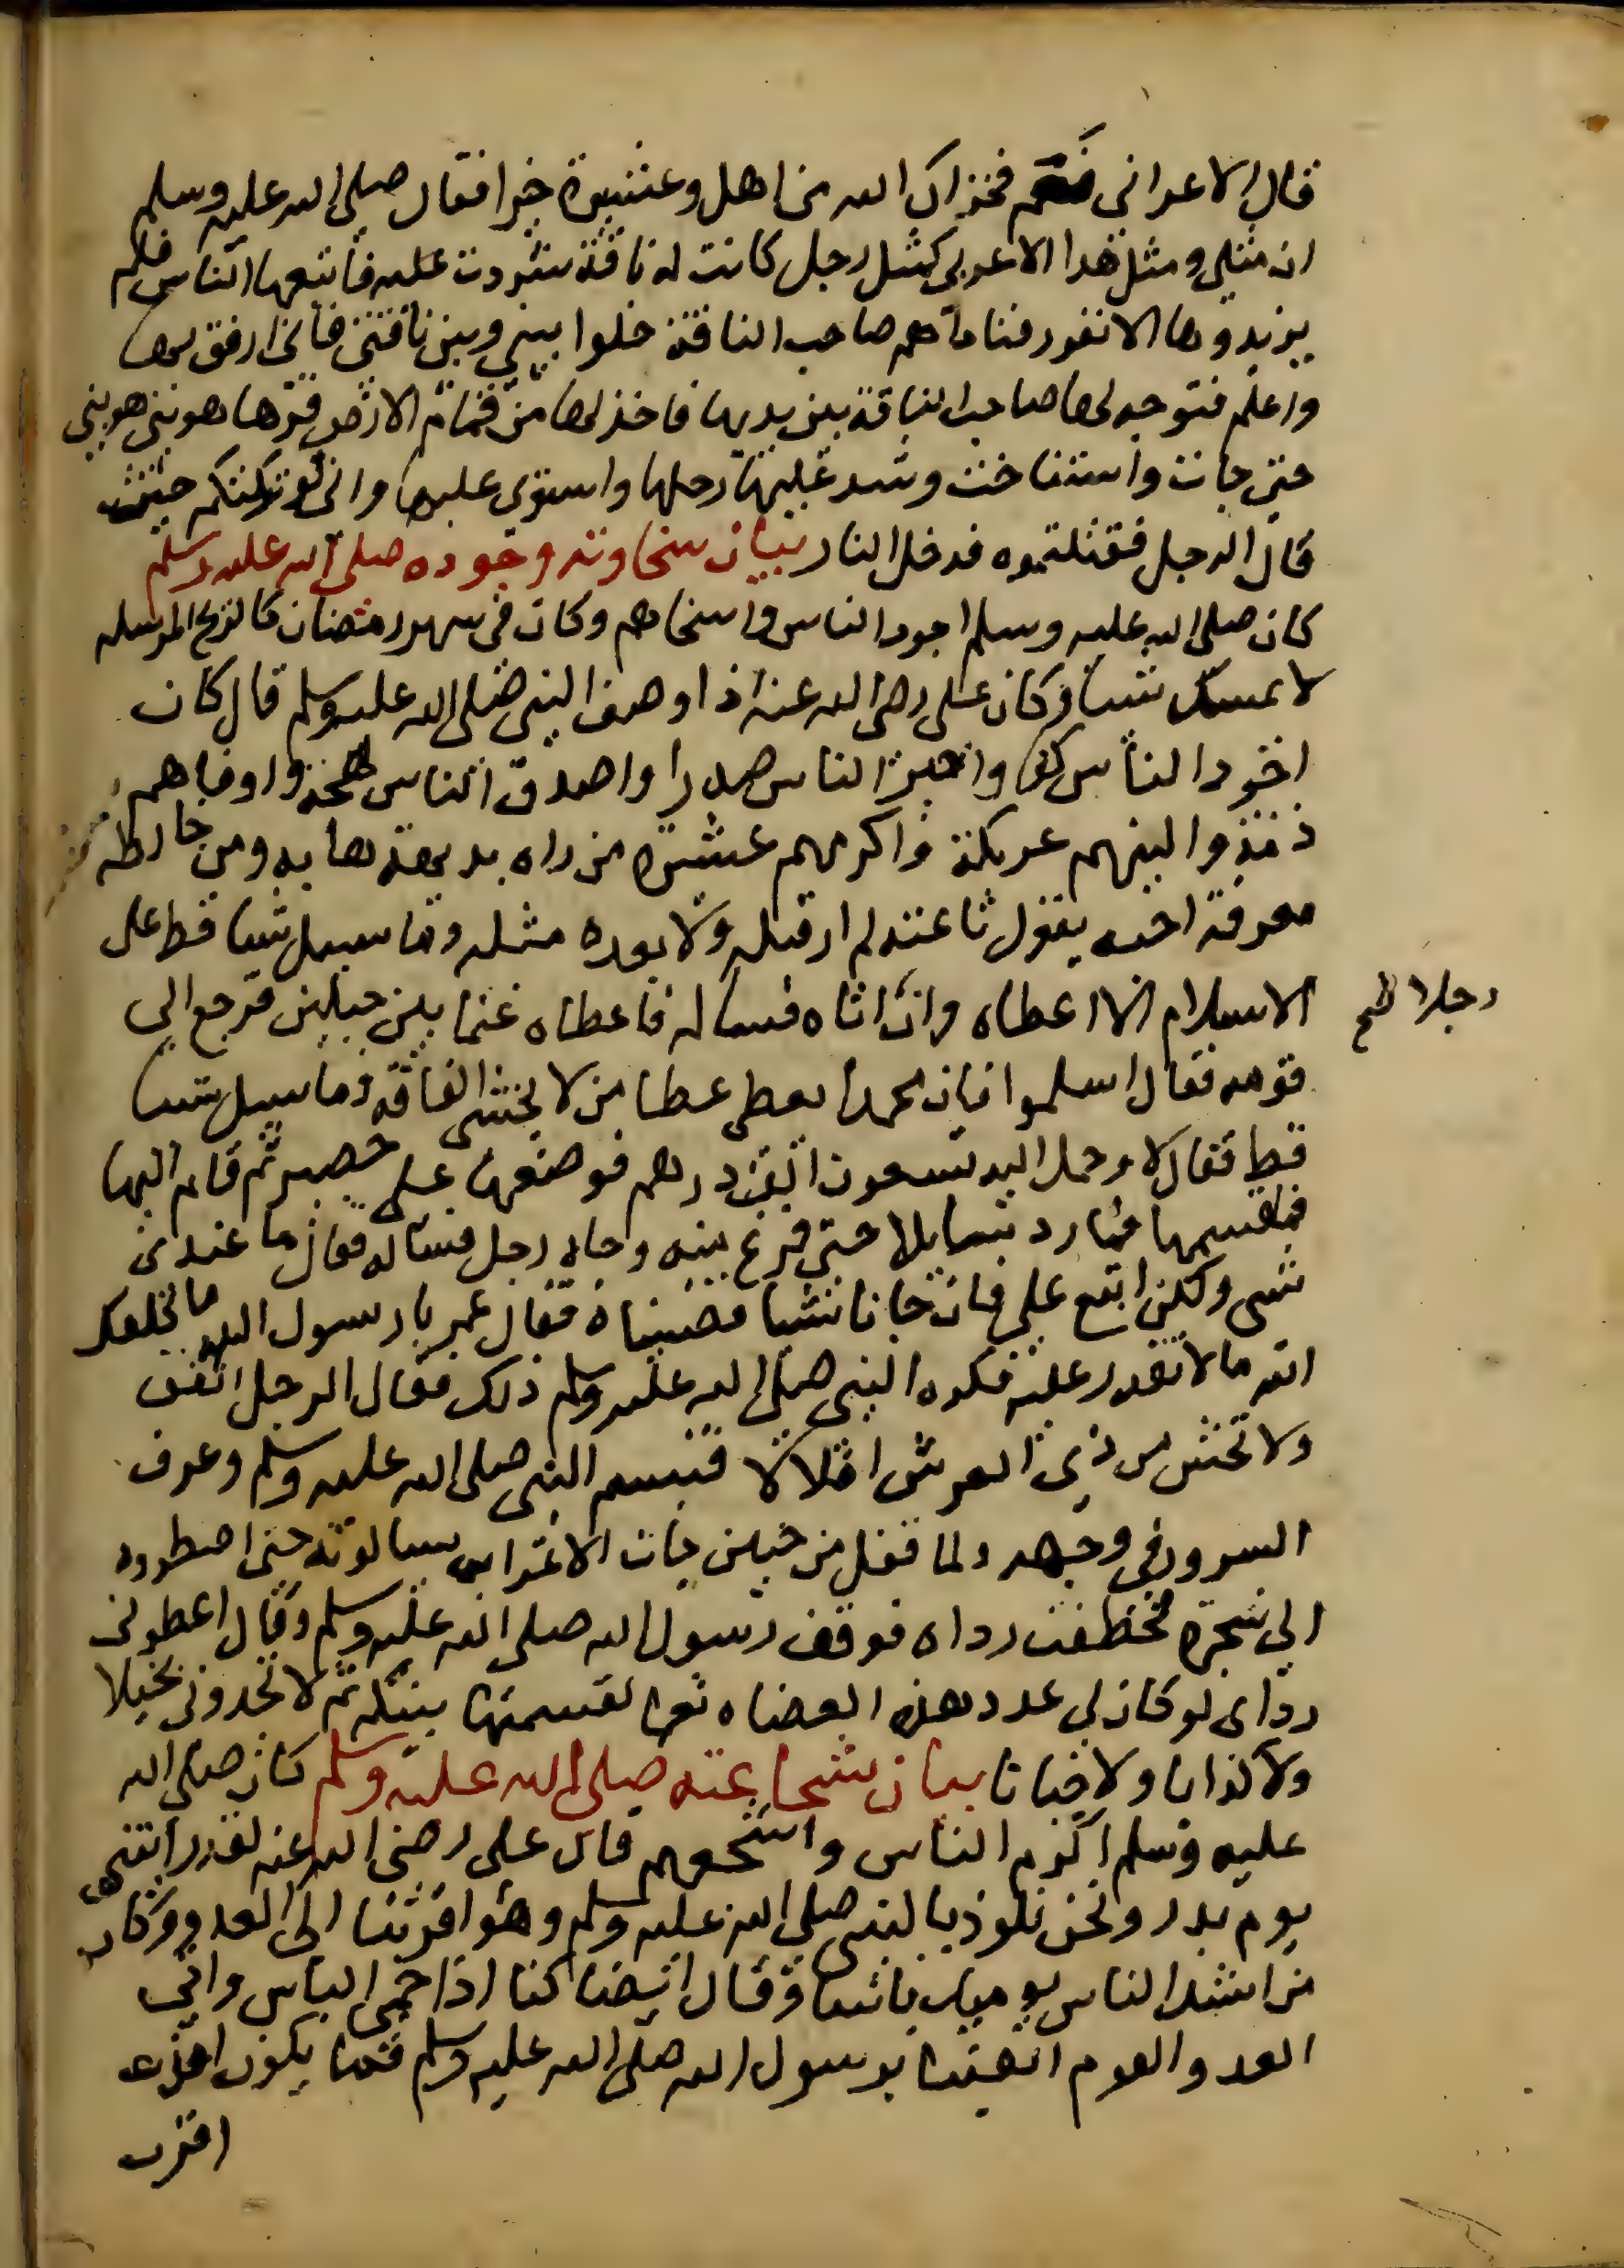 قال الاعرابى نعم فجزاك الله من اهل وعشيرة خيرا فقال صلى الله عليه وسلم
ان مثلى ومثل هذا الاعربى كمثل رجل كانت له ناقة شردت عليه فاتبعها الناس فلم
يزيدوها الانفورا فناداهم صاحب الناقة خلوا بينى وبين ناقتى فانى ارفق بها
واعلم فتوجه لها صاحب الناقة بين يديها فاخذ لها من قمام الارض فردها هونى هونى
حتى جات واستناخت وشد عليها رحلها واستوى عليها وانى لو تركتكم حيث
قال الرجل فقتلتموه فدخل النار بيان سخاوته وجوده صلى الله عليه وسلم
كان صلى الله عليه وسلم اجود الناس واسخاهم وكان فى شهر رمضان كالريح المرسله
لا يمسك شيا وكان على رضى الله عنه اذا وصف النبى صلى الله عليه وسلم قال كان
اجود الناس كفا واجرا الناس صدرا واصدق الناس لهجة واوفاهم
ذمة والينهم عريكة واكرمهم عشرة من راه بديهة هابه ومن خالطه
معرفة احبه يقول ناعته لم ار قبله ولا بعده مثله وما سيل شيا قط على
الاسلام الا اعطاه وان اتاه فساله فاعطاه غنما بين جبلين فرجع الى
رجلا صح
قومه فقال اسلموا فان محمدا يعطى عطا من لا يخشى الفاقه وما سيل شيا
قط فقال لا وحمل اليه تسعون الف درهم فوضعها على حصير ثم قام اليها
فقسمها فما رد سايلا حتى فرغ منه وجاه رجل فساله فقال ما عندى
شى ولكن ابتع على فان جانا شيا قضيناه فقال عمر يا رسول الله ما كلفك
الله ما لا تقدر عليه فكره النبى صلى الله عليه وسلم ذلك فقال الرجل انفق
ولا تخش من ذى العرش اقلالا فتبسم النبى صلى الله عليه وسلم وعرف
السرور فى وجهه ولما قفل من حنين جات الاعراب يسالونه حتى اضطروه
الى شجرة فخطفت رداه فوقف رسول الله صلى الله عليه وسلم وقال اعطونى
رداى لو كان لى عدد هذه العضاه نعما لقسمتها بينكم ثم لا تجدونى بخيلا
ولا كذابا ولا جبانا بيان شجاعته صلى الله عليه وسلم كان صلى الله
عليه وسلم اكرم الناس واشجعهم قال على رضى الله عنه لقد رايتنى
يوم بدر ونحن نلوذ بالنبى صلى الله عليه وسلم وهو اقربنا الى العدو وكان
من اشد الناس يوميذ باسا وقال ايضا كنا اذا حمى الباس ولقى
العدو القوم اتقينا برسول الله صلى الله عليه وسلم فما يكون احد
اقرب